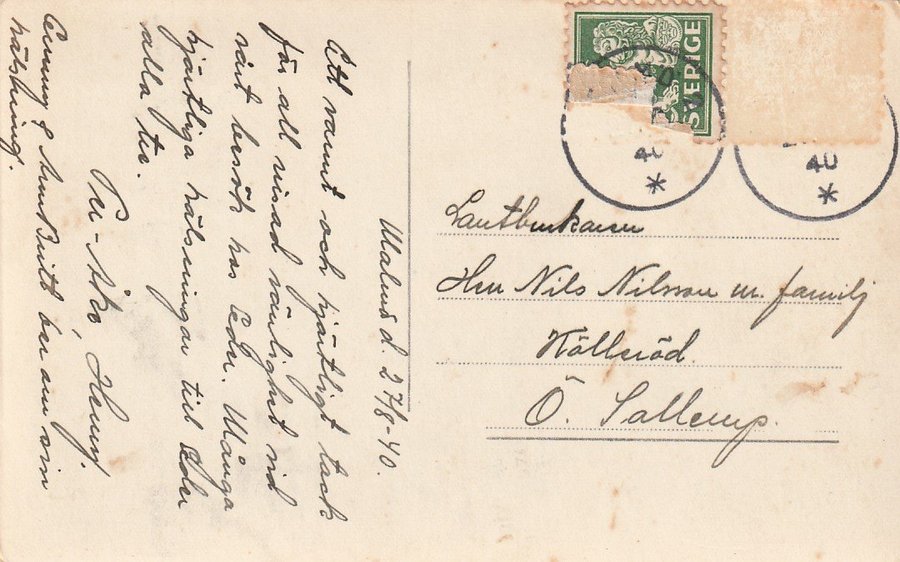 Malmö d. 27/8-40.
Ett varmt och hjärtligt tack
för all visad vänlighet vid
vårt besök hos Eder. Många
hjärtliga hälsningar till Eder
alla tre.
Per-Åke, Henny.
o AnnBritt ber om sin
hälsning.
SVERIGE
40
*
40
*
Lantbrukaren
Herr Nils Nilsson m. familj
Källeröd.
Ö. Sallerup.